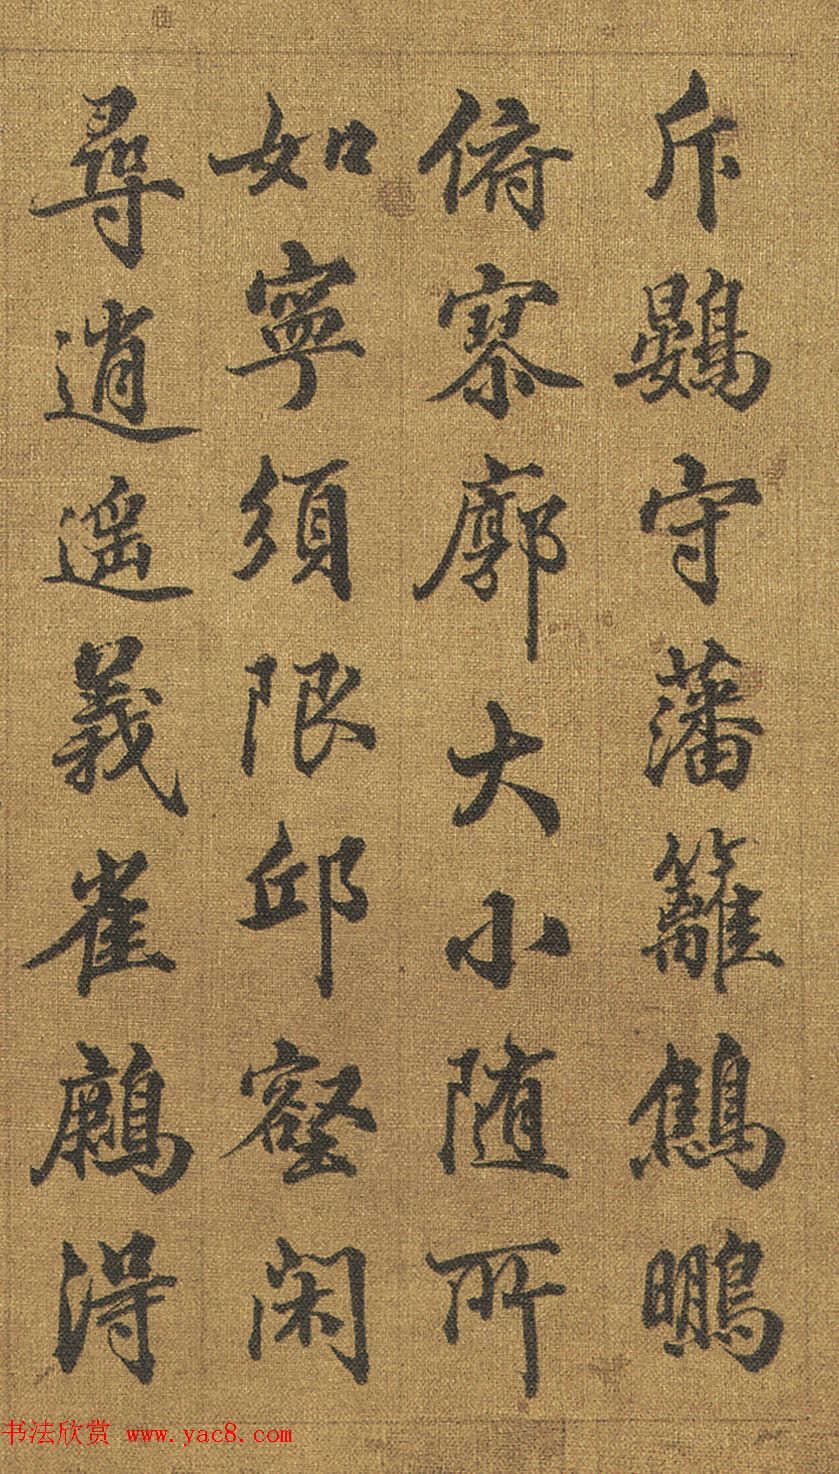 斥鷃守藩籬鷦䳟
俯寥廓大小随所
如寧須限邱壑閑
尋逍遥義雀得
书法欣赏 www.yac8.com